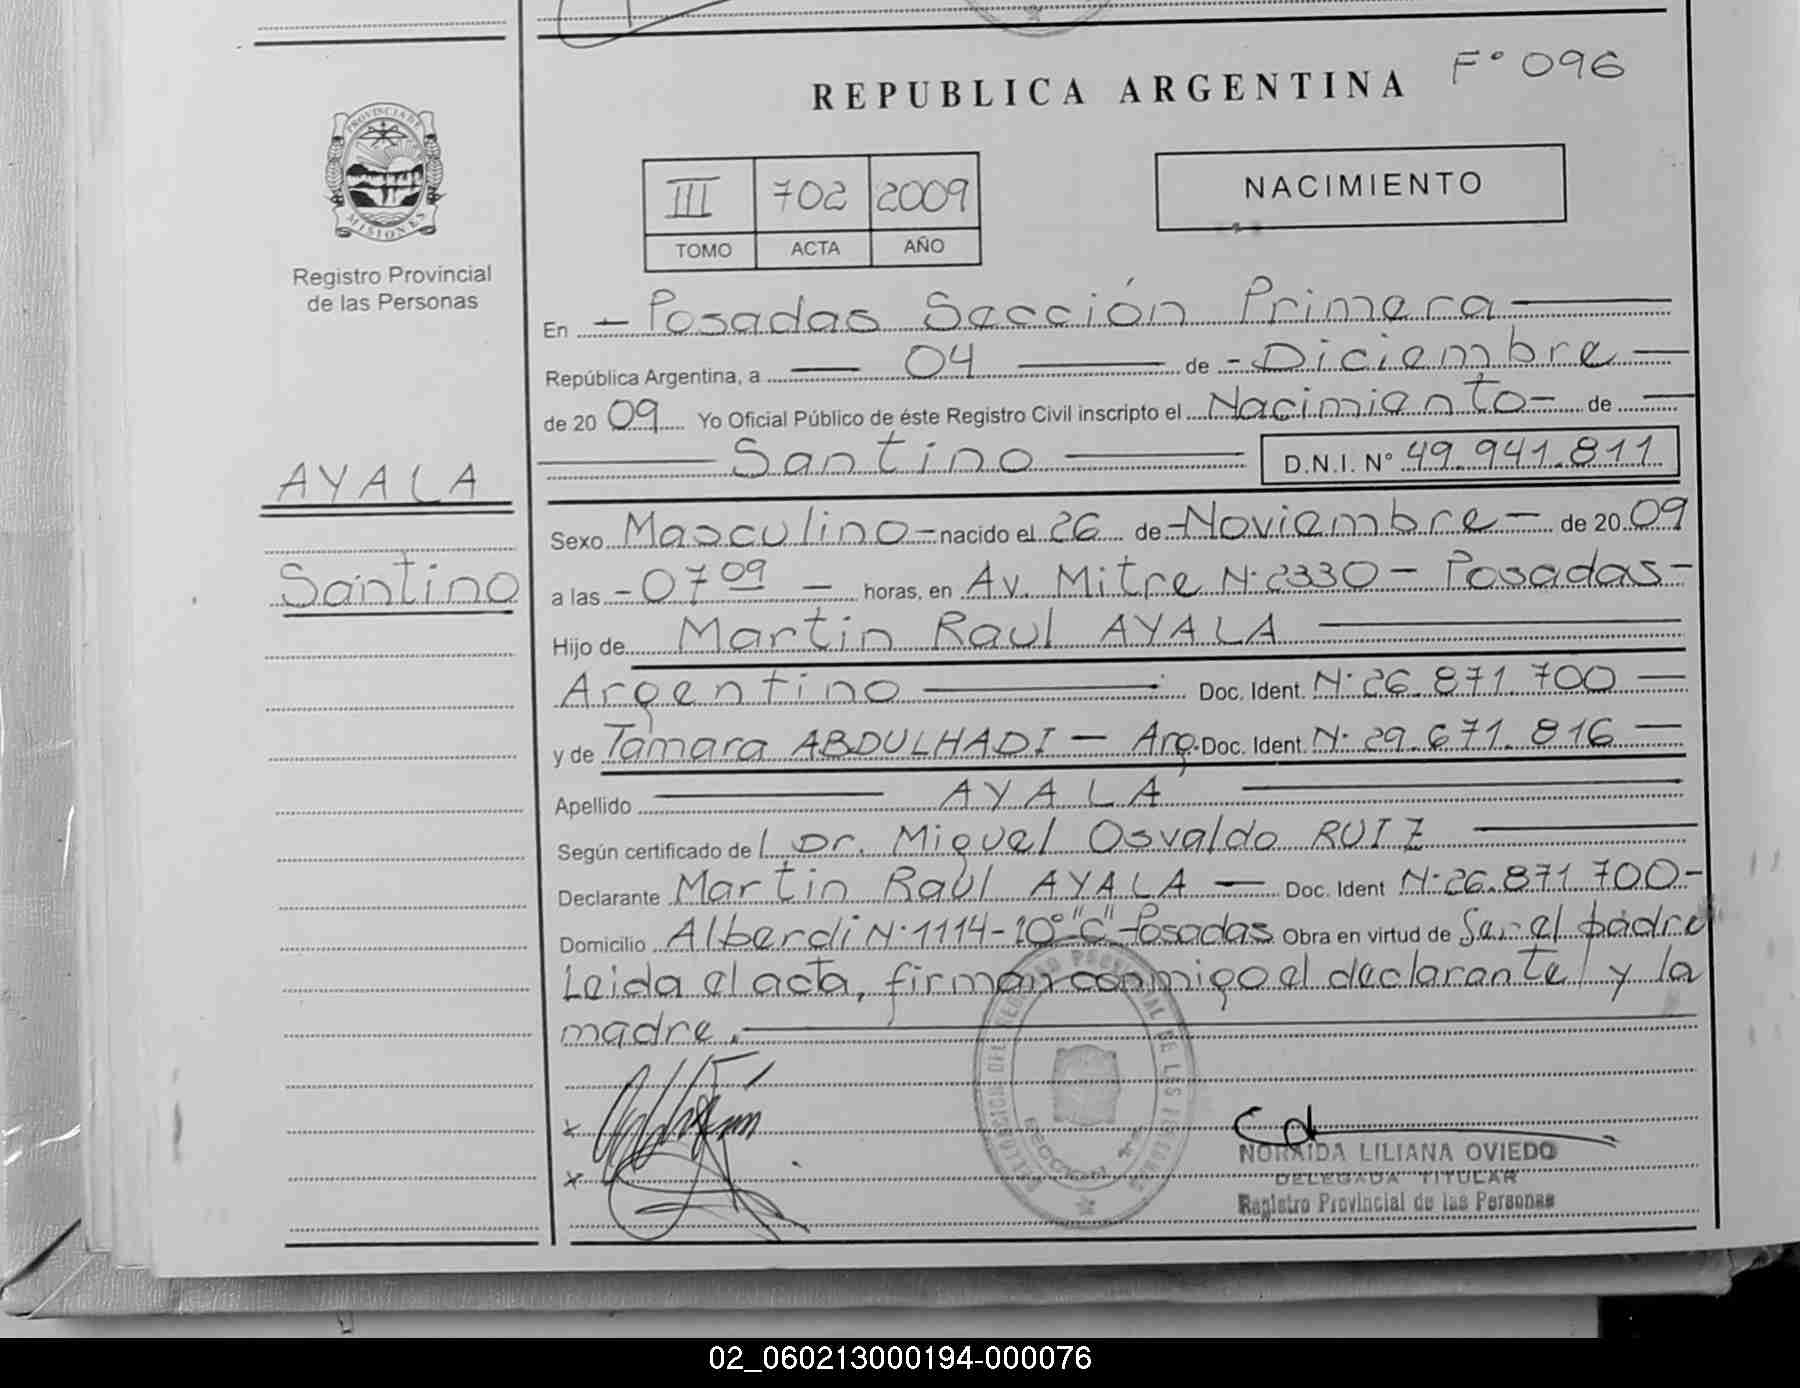 F° 096
REPUBLICA ARGENTINA
PROVINCIA DE
MISIONES
Registro Provincial
de las Personas
III 702 2009
TOMO ACTA AÑO
NACIMIENTO
En - Posadas Sección Primera
República Argentina, a 04 de - Diciembre
de 2009 Yo Oficial Público de éste Registro Civil inscripto el Nacimiento - de
Santino D.N.I. N° 49.941.811
AYALA
Santino
Sexo Masculino - nacido el 26 de - Noviembre - de 2009
a las - 07 09 - horas, en Av. Mitre N° 2330 - Posadas -
Hijo de Martin Raul AYALA
Argentino Doc. Ident. N° 26.871.700
y de Tamara ABDULHADI - Arg. Doc. Ident. N° 29.671.816
Apellido AYALA
Según certificado del Dr. Miguel Osvaldo RUIZ
Declarante Martin Raúl AYALA - Doc. Ident N° 26.871.700 -
Domicilio Alberdi N° 1114 - 10° "C" - Posadas Obra en virtud de Ser el padre
Leida el acta, firman conmigo el declarante y la
madre.
x
x
NORAIDA LILIANA OVIEDO
DELEGADA TITULAR
Registro Provincial de las Personas
02_060213000194-000076